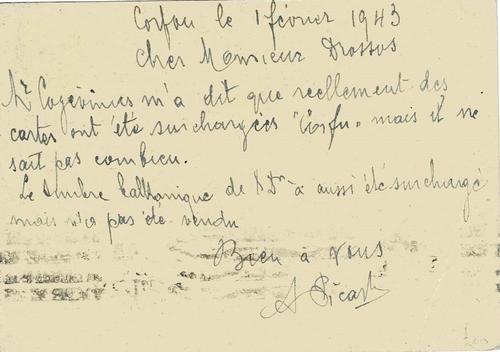 Corfou le 1 février 1943
Cher Monsieur Drossos
Mr Cogevinas m'a dit que reellement des
cartes ont été surchargées "Corfu" mais il ne
sait pas combien.
Le timbre balkanique de 8 Dr a aussi été surchargé
mais n'a pas été vendu
Bien à vous
A Picard